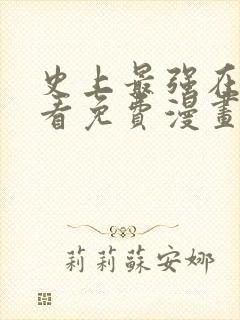 史上最强在
看免費漫畫
莉莉蘇安娜